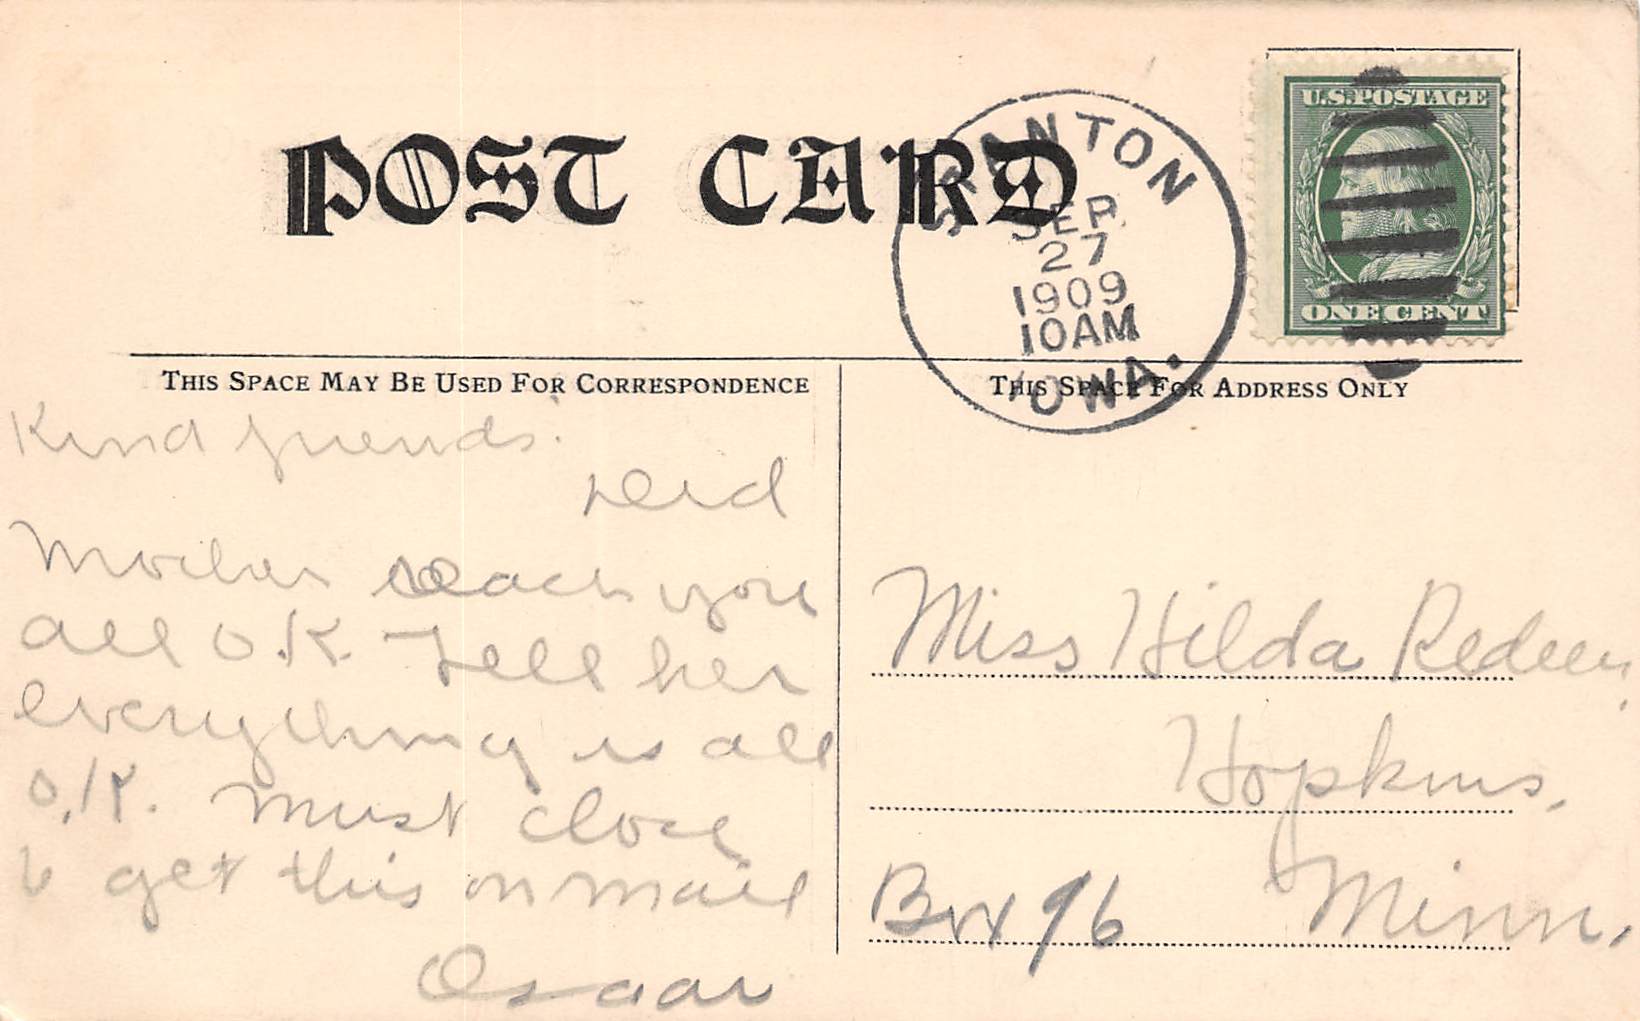 POST CARD
STANTON
SEP.
27
1909
10AM
IOWA.
U.S. POSTAGE
ONE CENT
THIS SPACE MAY BE USED FOR CORRESPONDENCE
Kind friends:
Did
Mother reach you
all O.K. Tell her
everything is all
O.K. Must close
to get this on mail
Oscar
THIS SPACE FOR ADDRESS ONLY
Miss Hilda Redeen,
Hopkins,
Box 96 Minn.